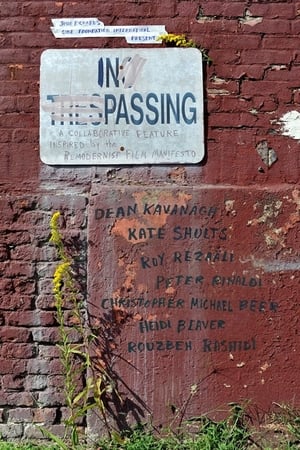 JESSE RICHARDS
CINE FOUNDATION INTERNATIONAL
PRESENT
IN
PASSING
A COLLABORATIVE FEATURE
INSPIRED BY THE
REMODERNIST FILM MANIFESTO
DEAN KAVANAGH
KATE SHULTS
ROY REZAÄLI
PETER RINALDI
CHRISTOPHER MICHAEL BEER
HEIDI BEAVER
ROUZBEH RASHIDI